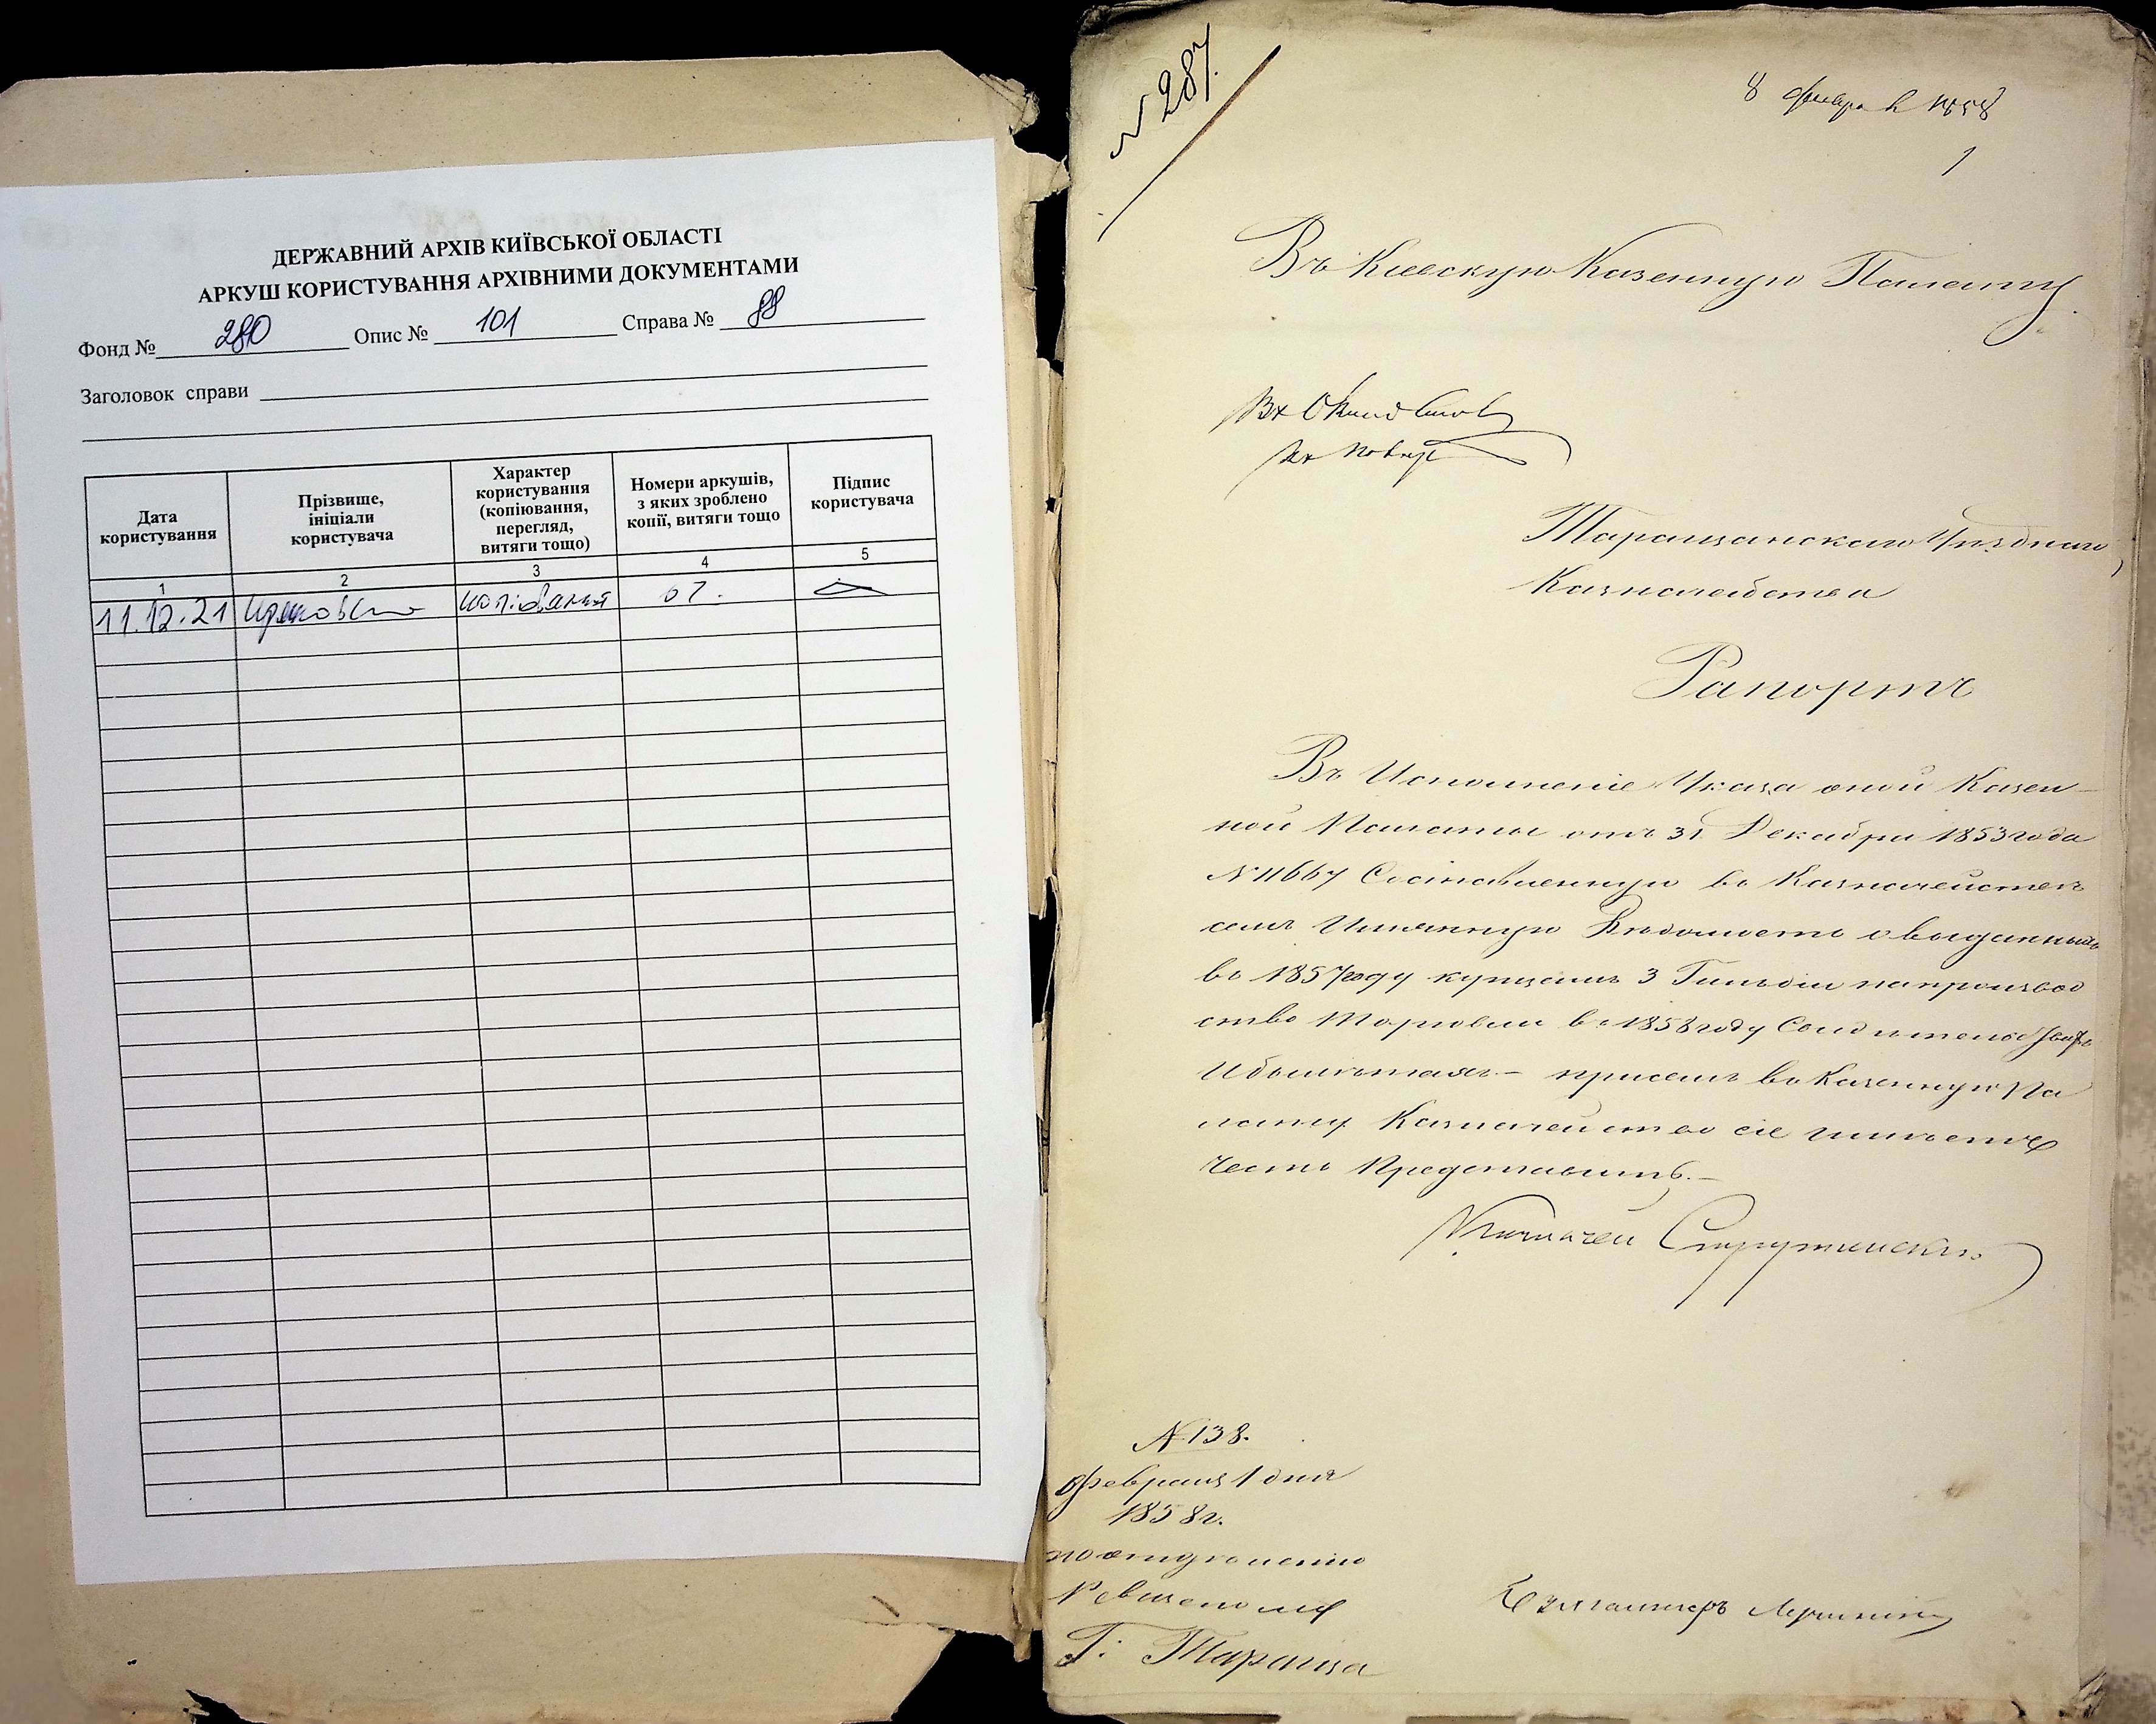 ДЕРЖАВНИЙ АРХІВ КИЇВСЬКОЇ ОБЛАСТІ
АРКУШ КОРИСТУВАННЯ АРХІВНИМИ ДОКУМЕНТАМИ
Фонд № 280 Опис № 101 Справа № 88
Заголовок справи
Дата користування
Прізвище, ініціали користувача
Характер користування (копіювання, перегляд, витяги тощо)
Номери аркушів, з яких зроблено копії, витяги тощо
Підпис користувача
1 2 3 4 5
11.12.21 копіювання
№ 287.
8 февра 1858
1
Въ Киевскую Казенную Палату.
Таращанскаго Уѣзднаго
Казначейства
Рапортъ
Въ Исполненіе Указа оной Казен-
ной Палаты отъ 31 Декабря 1853 года
№ 11667 Составленную въ Казначействѣ
семъ Имянную Вѣдомость о выданныхъ
въ 1857 году купцамъ 3 Гильдіи на производ
ство Торговли въ 1858 году
присемъ въ Казенную Па
лату Казначейство сіе имѣетъ
Честь Представить.-
Казначей
№ 138.
Февраля 1 дня
1858 г.
по отдѣленію
Ревизскому
Г: Тараща
Бухгалтеръ